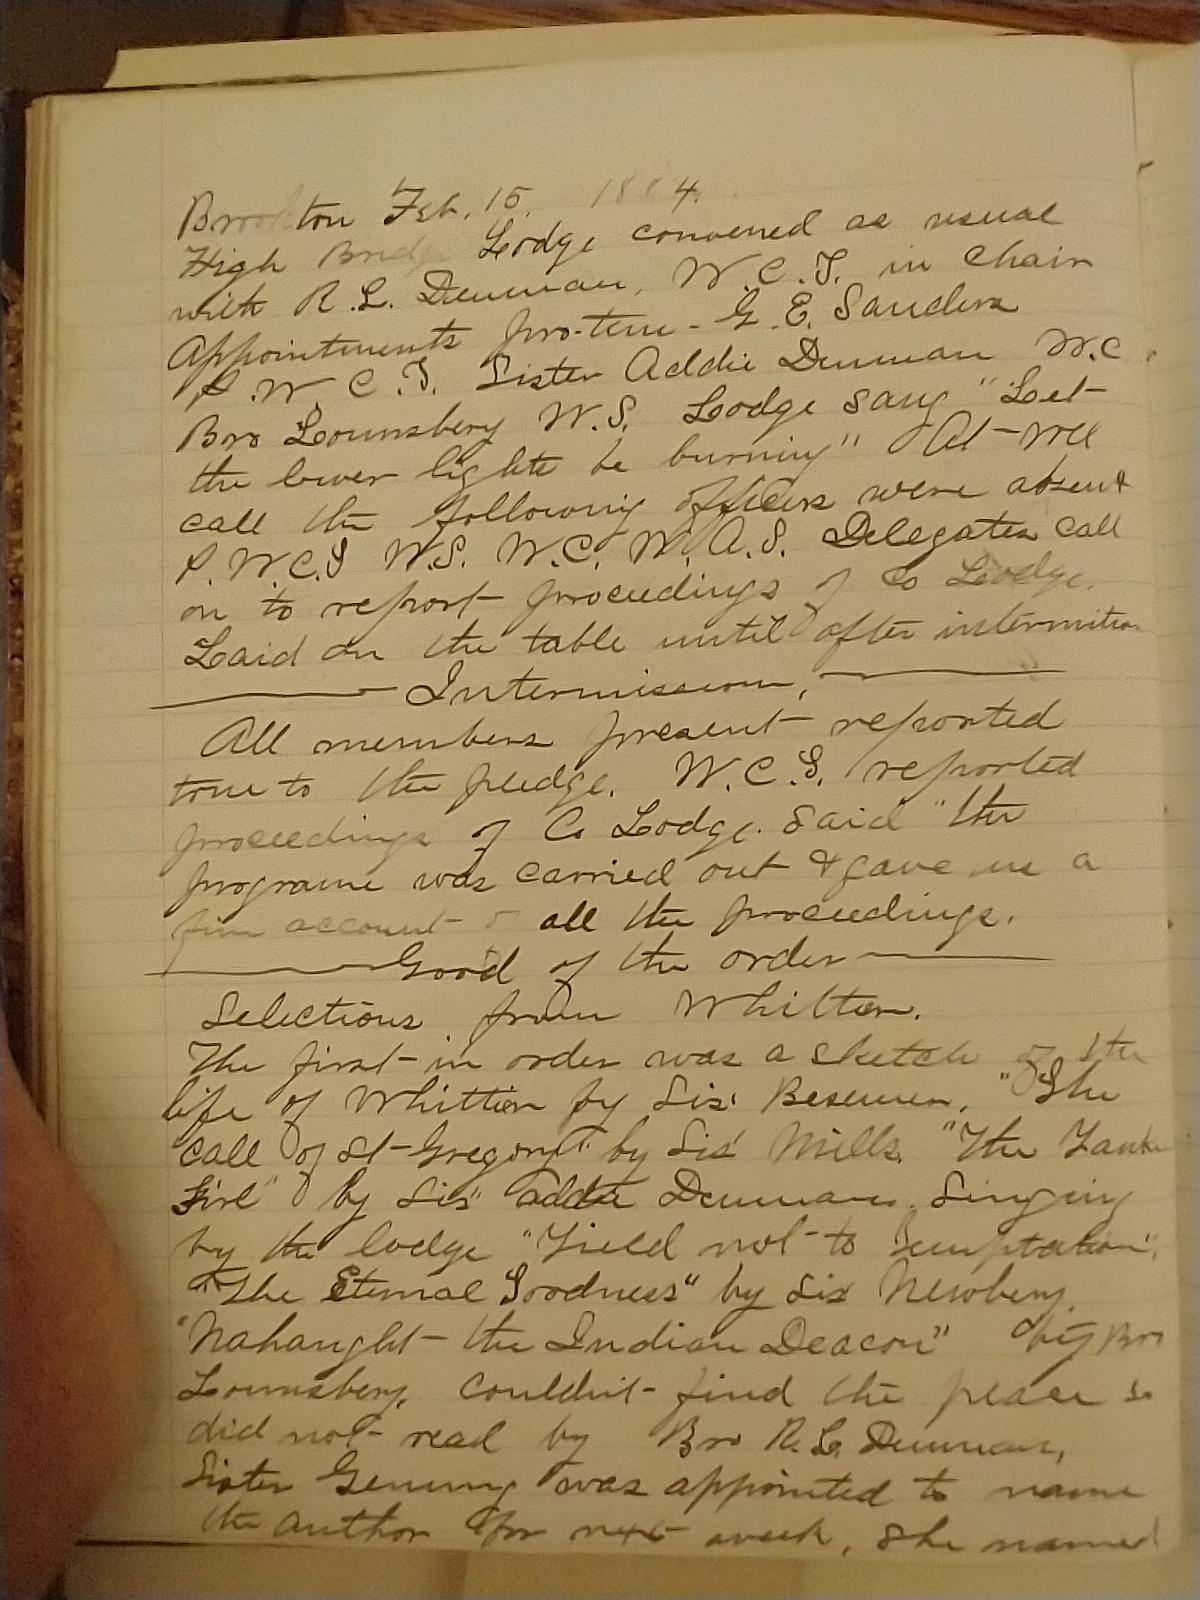 Brookton Feb. 15. 1884.
High Bridge Lodge convened as usual
with R.L. Denman, W.C.T. in chair
Appointments pro-tem - G.E. Sanders
P.W.C.T. Sister Addie Denman W.C.
Bro Lounsbery W.S. Lodge sang "Let
the lower lights be burning" At roll
call the following officers were absent
P.W.C.T W.S. W.C. W.A.S. Delegates call
on to report proceedings of Co Lodge.
Laid on the table until after intermition
Intermission,
All members present reported
true to the pledge. W.C.T. reported
proceedings of Co Lodge. Said "the
programe was carried out & gave us a
fine account of all the proceedings.
Good of the order
Selections from Whitter.
The first in order was a sketch of the
life of Whittier by Sis' Besemer. "The
call of St Gregory" by Sis' Mills. "The Yankee
Girl" by Sis' addie Denman. Singing
by the lodge "Yield not to temptation".
"The Eternal Goodness" by Sis Newbery.
"Nahaught the Indian Deacon" by Bro
Lounsbery. Couldnt find the peace so
did not read by Bro R.L. Denman,
Sister Genung was appointed to name
the author for next week, she named